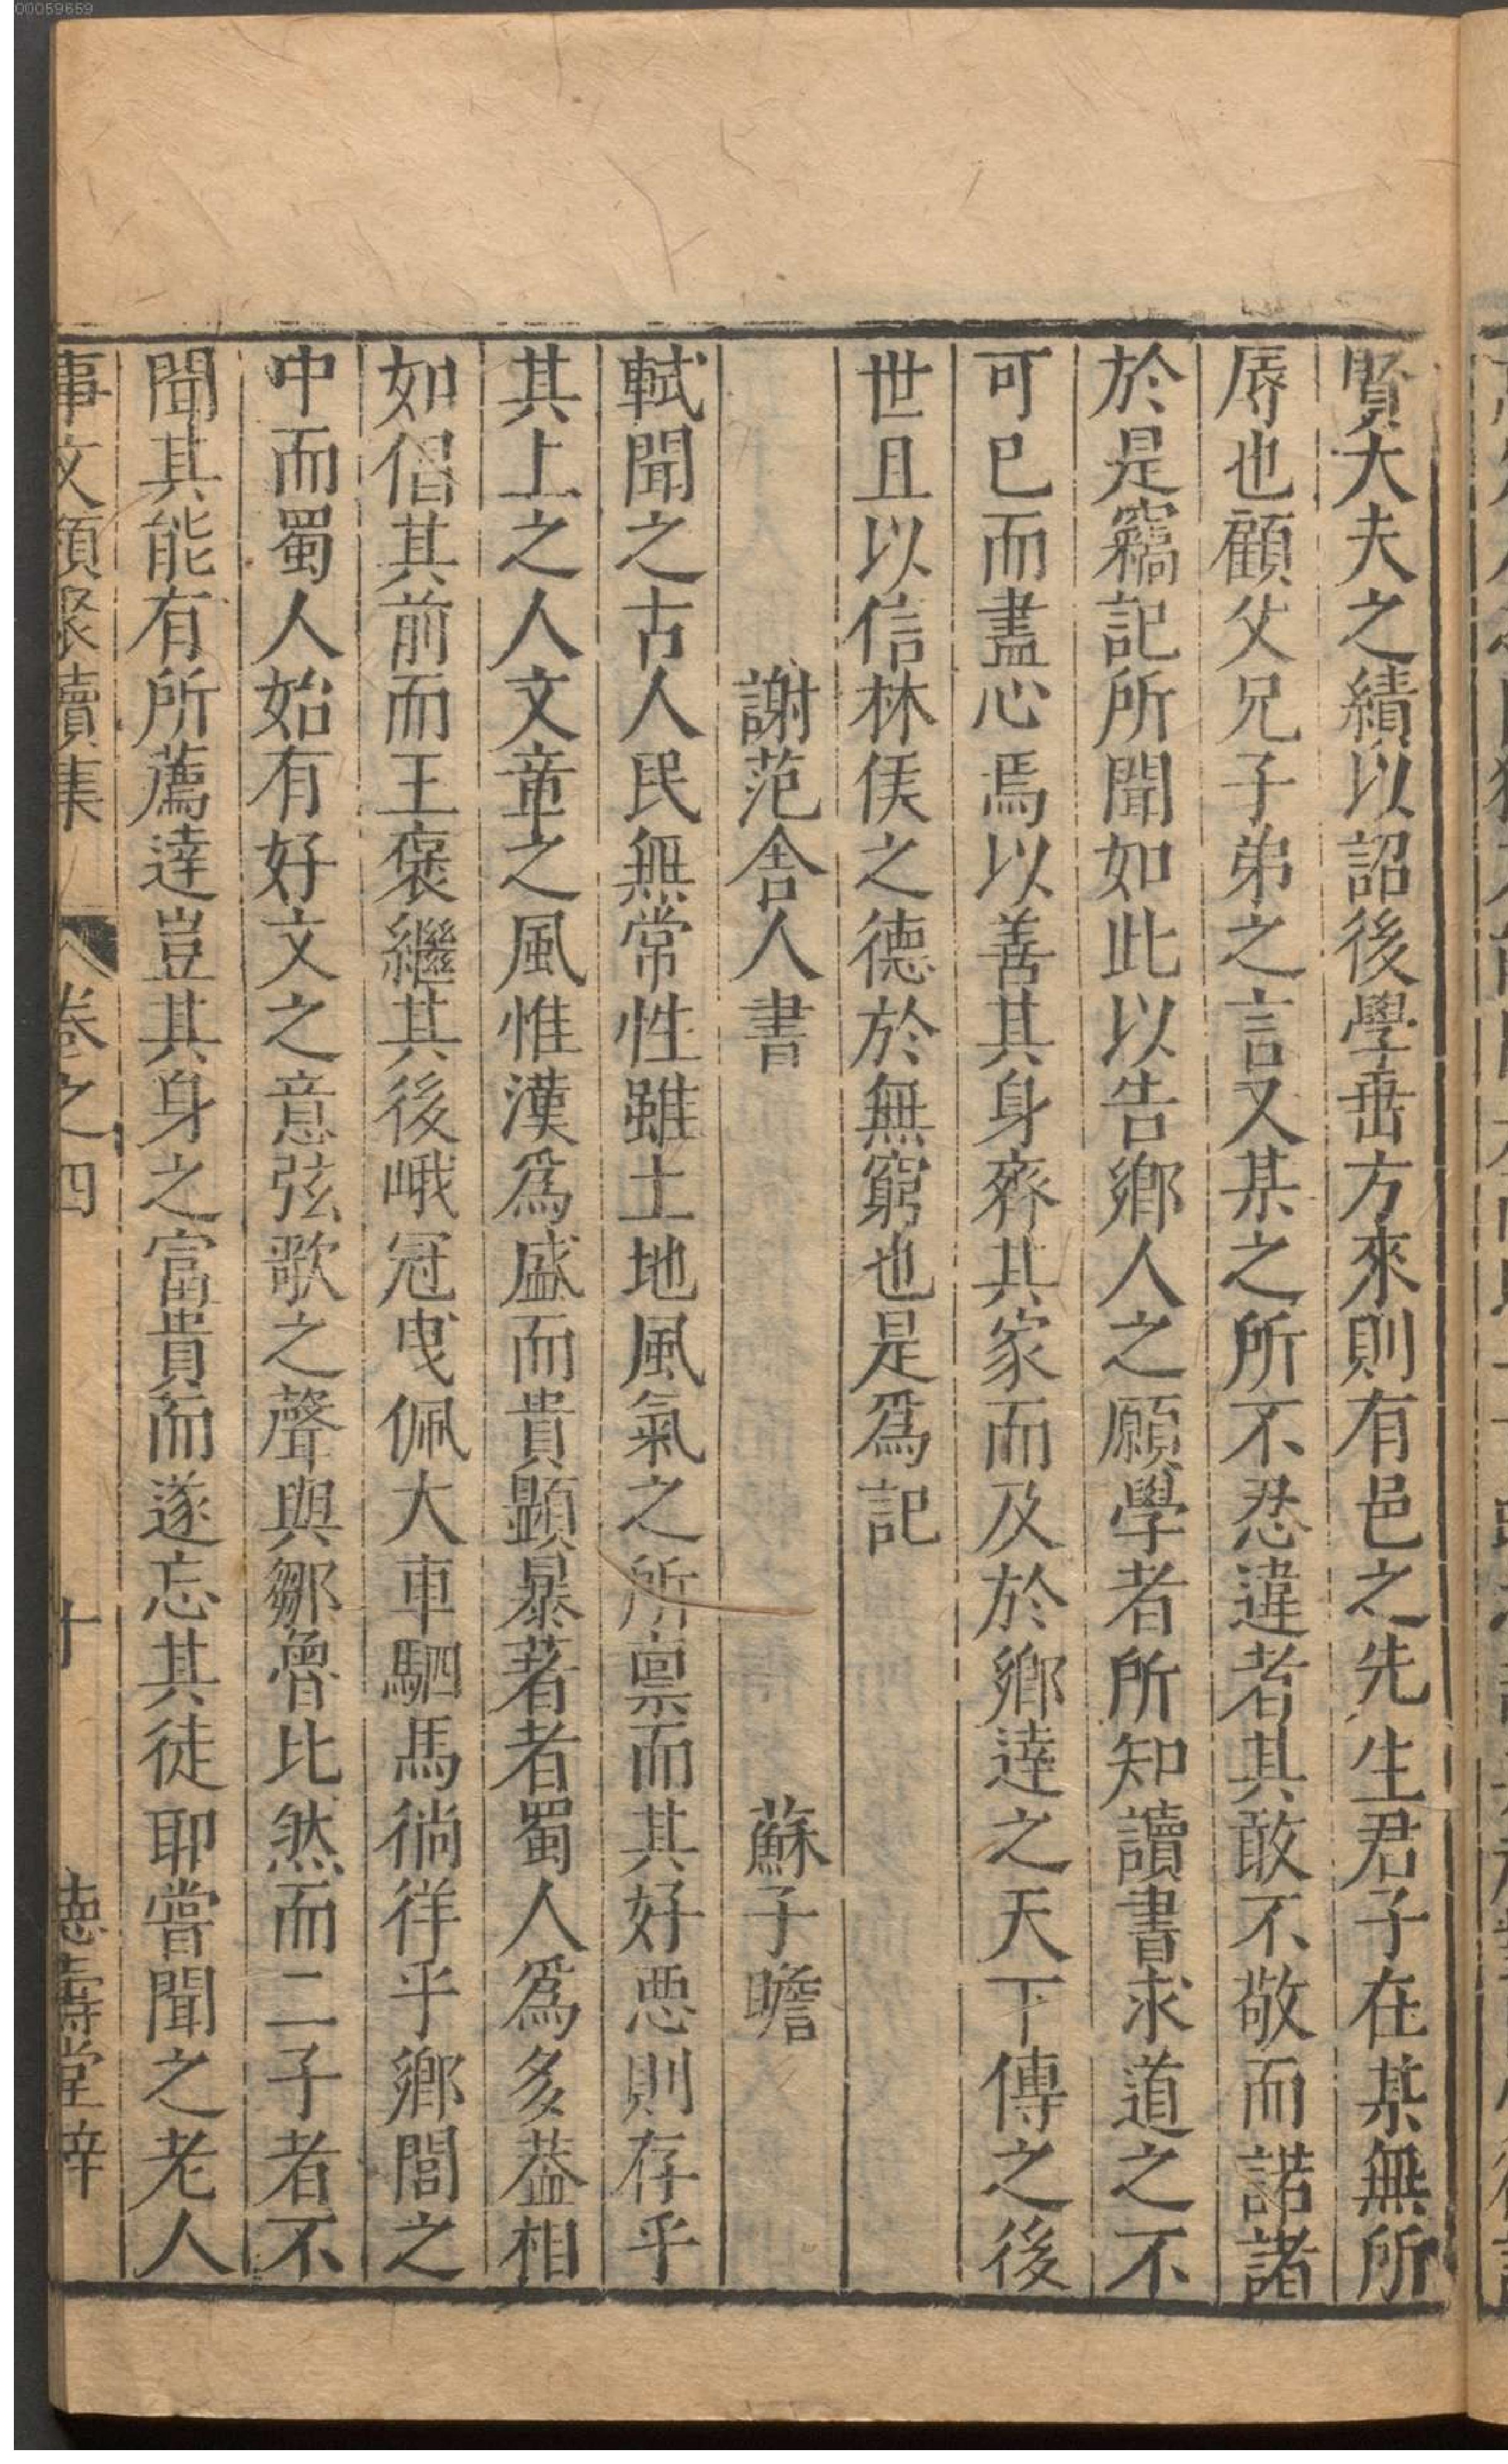 00059659
賢大夫之績以詔後學垂方來則有邑之先生君子在某無所
辱也顧父兄子弟之言又某之所不忍違者其敢不敬而諾諸
於是竊記所聞如此以告鄉人之願學者所知讀書求道之不
可已而盡心焉以善其身齊其家而及於鄉達之天下傳之後
世且以信林侯之德於無窮也是爲記
謝范舍人書　蘇子瞻
軾聞之古人民無常性雖土地風氣之所禀而其好惡則存乎
其上之人文章之風惟漢爲盛而貴顯暴著者蜀人爲多葢相
如倡其前而王褒繼其後峨冠曳佩大車駟馬徜徉乎鄉閭之
中而蜀人始有好文之意弦歌之聲與鄒魯比然而二子者不
聞其能有所薦達豈其身之富貴而遂忘其徒耶嘗聞之老人
事文類聚續集　卷之四　十　德壽堂梓